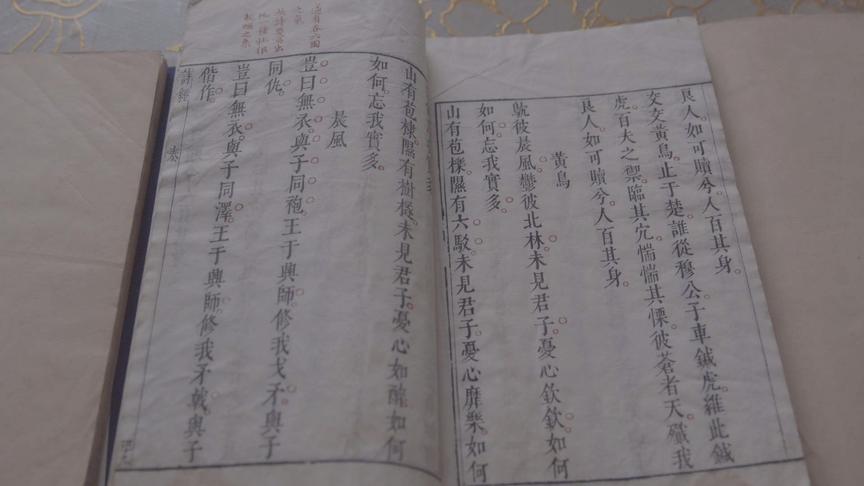 良人。如可贖兮。人百其身。
交交黃鳥。止于楚。誰從穆公。子車鍼虎。維此鍼
虎。百夫之禦。臨其穴。惴惴其慄。彼蒼者天。殲我
良人。如可贖兮。人百其身。
黃鳥
鴥彼晨風。鬱彼北林。未見君子。憂心欽欽。如何
如何。忘我實多。
山有苞櫟。隰有六駁。未見君子。憂心靡樂。如何
山有苞棣。隰有樹檖。未見君子。憂心如醉。如何
如何。忘我實多。
晨風
豈曰無衣。與子同袍。王于興師。修我戈矛。與子
同仇。
豈曰無衣。與子同澤。王于興師。修我矛戟。與子
偕作。
詩經 秦